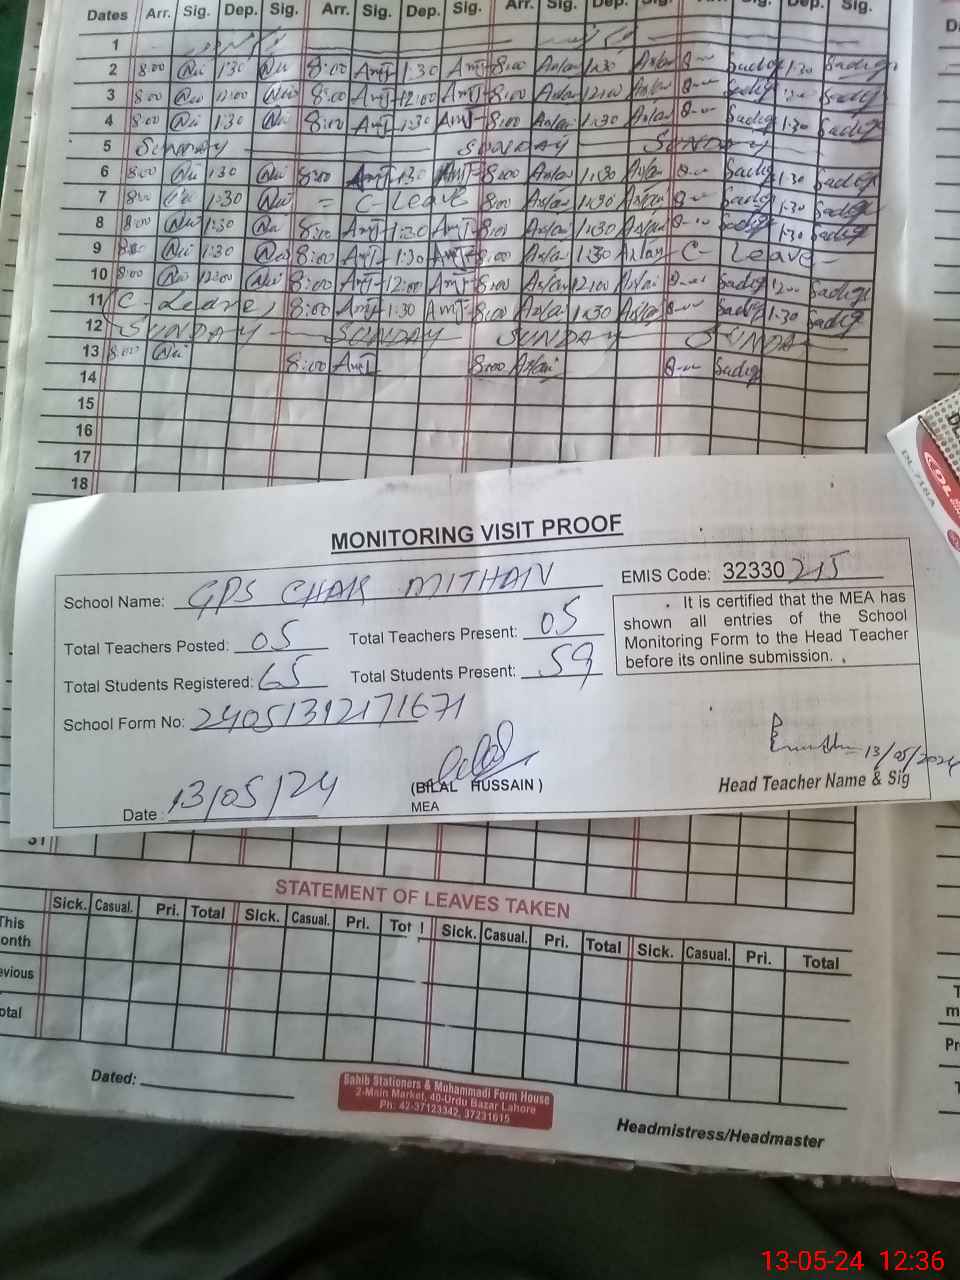 Dates Arr. Sig. Dep. Sig. Arr. Sig. Dep. Sig. Arr. Sig. Dep. Sig. Dep. Sig.
1
2 8:00 1:30 8:00 AmJ 1:30 AmJ 8:00 Aslam 1:30 Aslam 8-00 Sadiq 1:30 Sadiq
3 8:00 12:00 8:00 AmJ 12:00 AmJ 8:00 Aslam 12:00 Aslam 8-00 Sadiq 12:00 Sadiq
4 8:00 1:30 8:00 AmJ 1:30 AmJ 8:00 Aslam 1:30 Aslam 8-00 Sadiq 1:30 Sadiq
5 SUNDAY SUNDAY SUNDAY
6 8:00 1:30 8:00 AmJ 1:30 AmJ 8:00 Aslam 1:30 Aslam 8-00 Sadiq 1:30 Sadiq
7 8:00 1:30 = C-Leave 8:00 Aslam 1:30 Aslam 8-00 Sadiq 1:30 Sadiq
8 8:00 1:30 8:00 AmJ 1:30 AmJ 8:00 Aslam 1:30 Aslam 8-00 Sadiq 1:30 Sadiq
9 8:00 1:30 8:00 AmJ 1:30 AmJ 8:00 Aslam 1:30 Aslam C- Leave-
10 8:00 12:00 8:00 AmJ 12:00 AmJ 8:00 Aslam 12:00 Aslam 8-00 Sadiq 12:00 Sadiq
11 C-Leave 8:00 AmJ 1:30 AmJ 8:00 Aslam 1:30 Aslam 8-00 Sadiq 1:30 Sadiq
12 SUNDAY SUNDAY SUNDAY SUNDAY
13 8:00 8:00 AmJ 8:00 Aslam 8-00 Sadiq
14
15
16
17
18
MONITORING VISIT PROOF
School Name: GPS CHAK MITHAN EMIS Code: 32330215
Total Teachers Posted: 05 Total Teachers Present: 05
Total Students Registered: 65 Total Students Present: 59
It is certified that the MEA has
shown all entries of the School
Monitoring Form to the Head Teacher
before its online submission.
School Form No: 24051312171671
13/05/2024
(BILAL HUSSAIN)
MEA
Head Teacher Name & Sig
Date: 13/05/24
31
STATEMENT OF LEAVES TAKEN
Sick. Casual. Pri. Total Sick. Casual. Pri. Sick. Casual. Pri. Total Sick. Casual. Pri. Total
This
Dated:
Sahib Stationers & Muhammadi Form House
2-Main Market, 40-Urdu Bazar Lahore
Ph: 42-37123342, 37231615
Headmistress/Headmaster
DL-718A
13-05-24 12:36